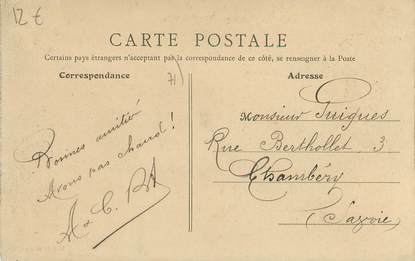 12 €
CARTE POSTALE
Certains pays étrangers n'acceptant pas la correspondance de ce côté, se renseigner à la Poste
Correspondance
71
Adresse
Bonnes amitiés
Avons pas chaud!
Monsieur Guigues
Rue Berthollet, 3
Chambéry
Savoie